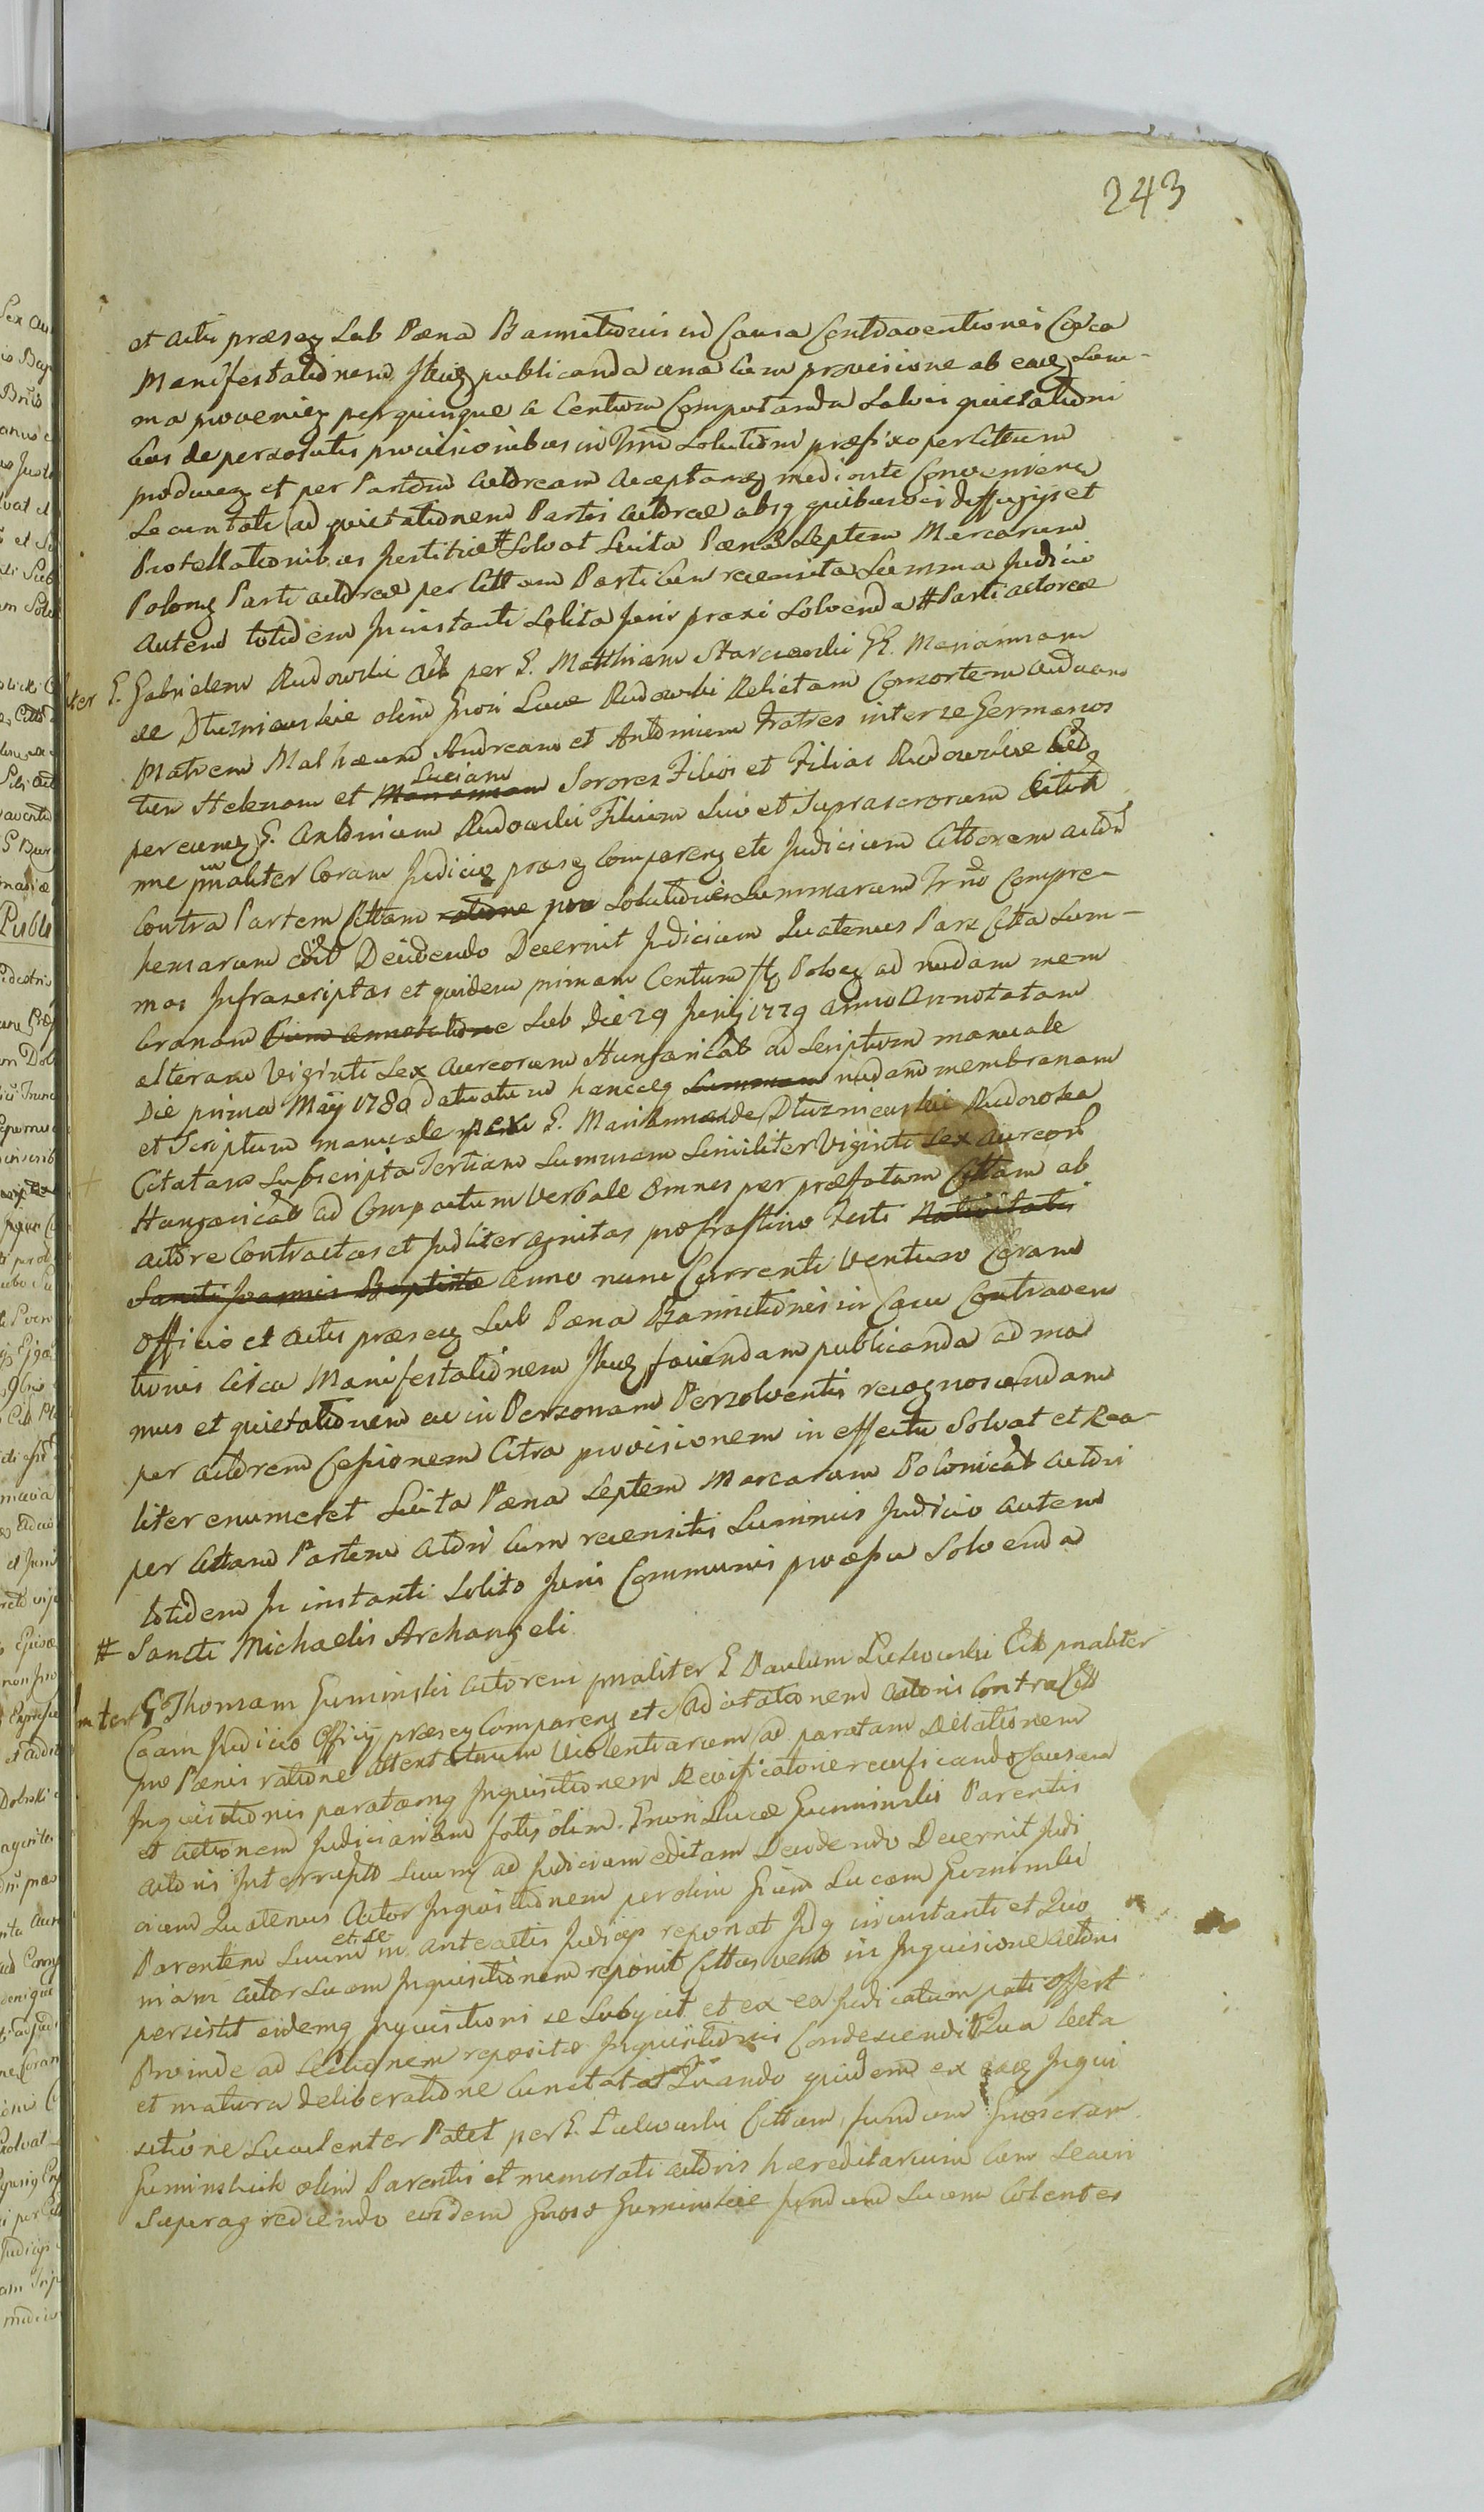 243
et Actis præseq Sub Pæna Bannitionis in Causa Contraventionis Circa
Manifestationem Ibiq publicanda una Cum provisione ab eaq Sum-
ma provenieq per quinque a Centum Computanda Salvis quietationi
bus de persolutis provisionibus in Trno Solutioni præfixo per Cittum
producẽq et per Partem Actoream Acceptanq mediante
ad quietationem Partis Actoreæ absq quibusvis diffugijs et
Protellationibus Justitiæ # Solvat Luita Pæna Septem Marcarum
Polonq Parti Actoreæ per Cittam Partem Cum recensita Summa Judicio
Autem totidem In instanti Solita Juris praxi Solvenda # Parti Actoreæ
ter G. Gabrielem Rudowski Act per G. Matthiam GG. Mariannam
de Dłuzniewskie olim Gnosi Lucæ Rudowski Relictam Consortem Viduam
Matrem Mathæum Andream et Antonium Fratres inter se Germanos
tum Helenam et Mariannam Luciam Sorores Filios et Filias Rudowskie Citt
per eumq G. Antonium Rudowski Filium Suo et Suprascrorum Cittor
nne pnaliter Coram Judicio præseq Compareq etc Judicium Attorem Actor
Contra Partem Cittam ratione pro Solutionis Summarum Trno Compre-
hensarum edit Decidendo Decernit Judicium Quatenus Pars Citta Sum-
mas Infrascriptas et quidem primam Centum fl Poloq ad nudam mem
branam Cum Annotatione Sub Die 29 Junij 1779 Anno Annotatam
alteram Viginti Sex Aureorum Hungarical ad Scriptum manuale
Die prima Maij 1780 datuatum hancceq Summam nudam membranam
et Scriptum manuale G. Mariannam de Dłuzniewskie Rudowska
Citatam Subscripta Tertiam Summam Similiter Viginti Sex Aureor
Hungarical ad Compactum Verbale Omnes per præfatam Cittam ab
Actore Contractas et Judliter agnitas pro Festi Nativitatis
Sancti Joannis Baptistæ Anno nunc Currenti Venturo Coram
Officio et Actis præseq Sub Pæna Bannitionis in Casu Contraven
tionis Circa Manifestationem Ibiq faciendam publicanda ad ma
nus et quietationem ac in Personam Persolventis recognoscendam
per Actorem Cessionem Citra provisionem in effectu Solvat et Rea-
liter enumeret Luita Pæna Septem Marcarum Polonical Actori
per Cittam Partem Actori Cum recensitis Summis Judicio autem
totidem In instanti Solito Juris Communis processu Solvenda
# Sancti Michaelis Archangeli
Inter G Thomam Guminski Actorem pnaliter G Paulum Citt pnaliter
Coram Judicio Officij præseq Compareq et Ad Actoris Contra Citt
pro Pænis ratione Attentatuum Violentiarum ad paratam Delationem
Inquisitionis paratamq Inquisitionem
et Actionem Judiciariam olim Gnosi Lucæ Guminski Parentis
Actoris Interrupto Suumq ad Judicium editam Decidendo Decernit Judi
cium Quatenus Actor Inquisitionem per olim Gsum Lucam Guminski
Parentem Suum et se in anteactis Judicijs reponat Idq in instanti et Quo
niam Actor Suam Inquisitionem reponit Cittus vero in Inquisitione Actoris
persistit eidemq Inquisitioni se Subijcit et ex ea Judicatum pati offert
Proinde ad Lectionem repositæ Inquisitionis Condescendit Qua Lecta
et matura deliberatione Quando quidem ex eaq Inqui
sitione Luculenter Patet per G. Cittum, fundum Gnosorum
Guminskich olim Parentis et memorati Actoris hæreditarium Cum
Supragrediendo eosdem Gnoso Guminskie fundum Suum Colentes